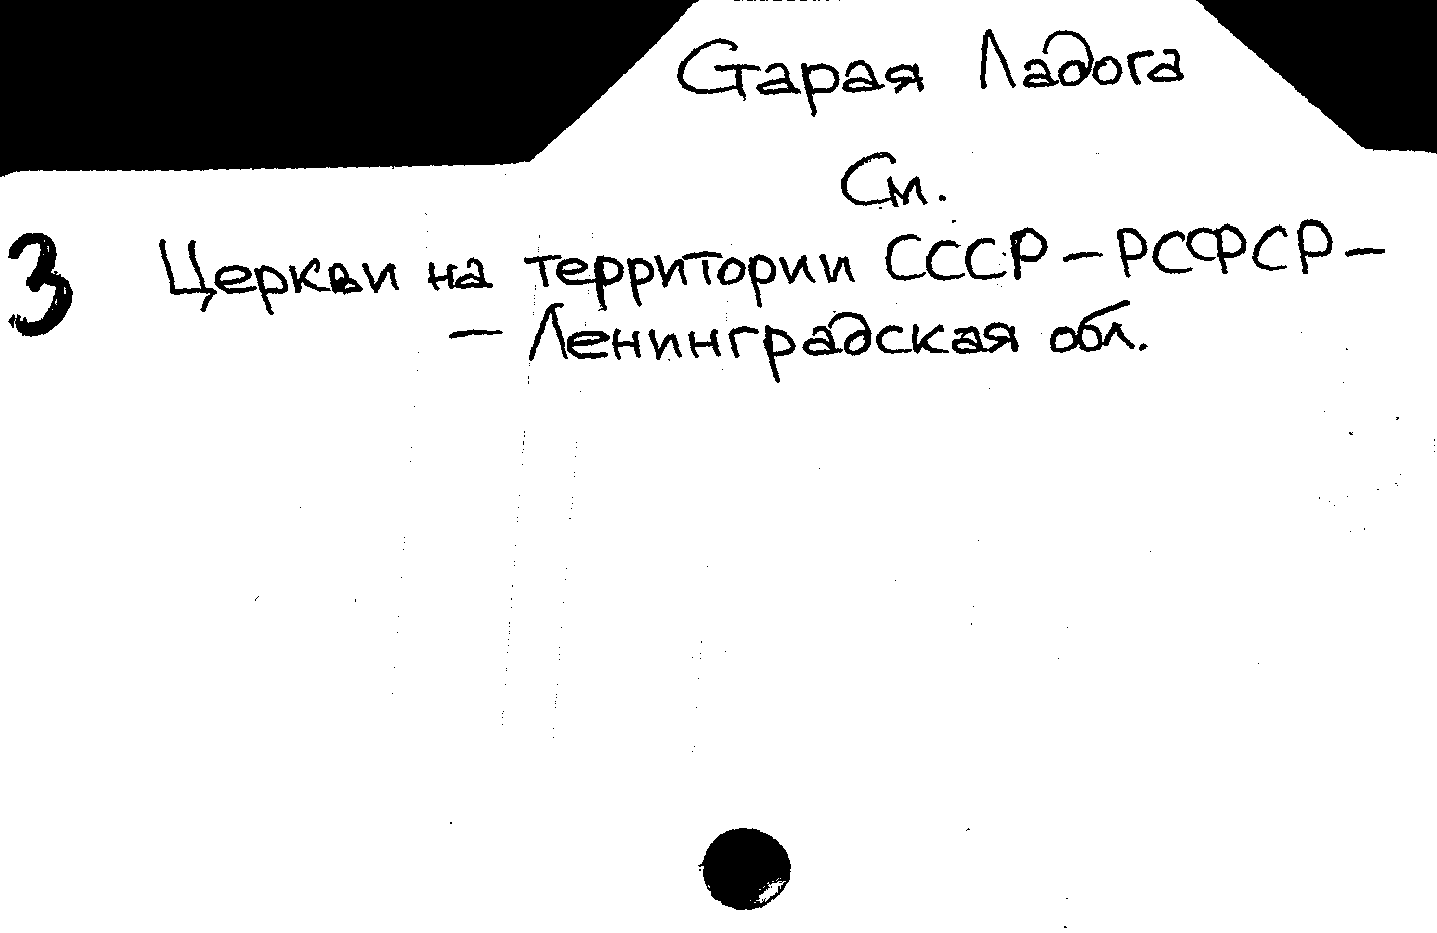 Старая Ладога
См.
3 Церкви на территории СССР – РСФСР –
– Ленинградская обл.